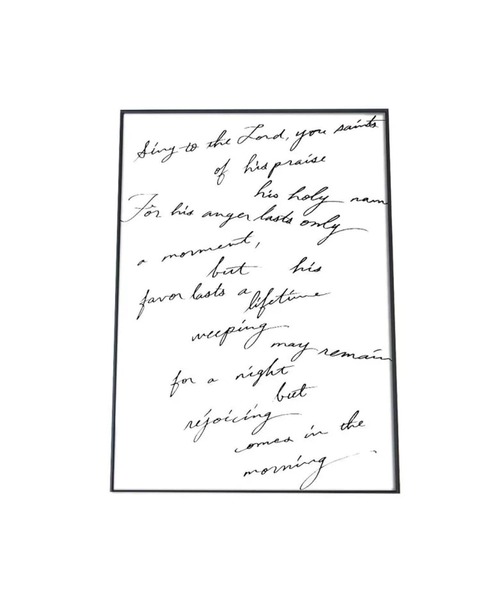 Sing to the Lord, you saints
of his praise
his holy nam
For his anger lasts only
a morment,
but his
favor lasts a lifetime
weeping
may remain
for a night
but
rejoicing
comes in the
morning